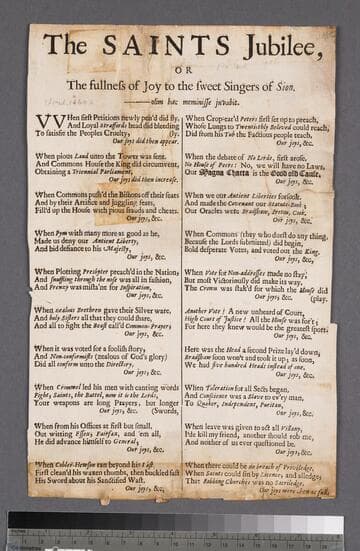 The SAINTS Jubilee,
OR
The fullness of Joy to the sweet Singers of Sion.
olim hæc meminisse juvabit.
WHen first Petitions newly pen'd did fly,
And Loyal Straffords head did bleeding
To satisfie the Peoples Cruelty, (ly.
Our joys did then appear.
When pious Laud unto the Tower was sent.
And Commons House the King did circumvent,
Obtaining a Triennial Parliament,
Our joys did then increase.
When Commons push'd the Bishops off their seats
And by their Artifice and juggling feats,
Fill'd up the House with pious frauds and cheats.
Our joys, &c.
When Pym with many more as good as he,
Made us deny our Antient Liberty,
And bid defiance to his Majesty,
Our joys, &c.
When Plotting Presbyter preach'd in the Nation,
And snuffling through the nose was all in fashion,
And Frenzy was mista'ne for Inspiration,
Our joys, &c.
When zealous Brethren gave their Silver ware,
And holy Sisters all that they could spare,
And all to fight the Beast call'd Common-Prayer;
Our joys, &c.
When it was voted for a foolish story,
And Non-conformists (zealous of God's glory)
Did all conform unto the Directory,
Our joys, &c.
When Cromwel led his men with canting words
Fight, Saints, the Battel, now it is the Lords,
Your weapons are long Prayers, but longer
Our joys, &c. (Swords,
When from his Offices at first but small,
Out witting Essex, Fairfax, and 'em all,
He did advance himself to General;
Our joys, &c.
When Colder-Hewson ran beyond his Last
First clean'd his waxen thombs, then buckled fast
His Sword about his Sanctified Wast.
Our joys, &c.
When Crop-ear'd Peters first set up to preach,
Whose Lungs to Twentiethly Beloved could reach,
Did from his Tub the Factious people teach,
Our joys, &c.
When the debate of No Lords, first arose,
No House of Peers: No, we will have no Laws,
Our Magna Charta is the Good old Cause,
Our joys, &c.
When we our Antient Liberties forsook,
And made the Covenant our Statute-Book;
Our Oracles were Bradshaw, Ireton, Cook,
Our joys, &c.
When Commons (they who durst do any thing,
Because the Lords submitted) did begin,
Bold desperate Votes, and voted out the King,
Our joys, &c.
When Vote for Non-addresses made no stay,
But most Victoriously did make its way,
The Crown was stak'd for which the House did
Our joys, &c. (play.
Another Vote! A new unheard of Court,
High Court of Justice! All the House was for't;
For here they knew would be the greatest sport;
Our joys, &c.
Here was the Head a second Prize lay'd down,
Bradshaw soon won't and took it up; as soon,
We had five hundred Heads instead of one,
Our joys, &c.
When Toleration for all Sects began,
And Conscience was a Slave to ev'ry man,
To Quaker, Independent, Puritan,
Our joys, &c.
When leave was given to act all Villany,
I'de kill my friend, another should rob me,
And nother of us ever questioned be.
Our joys, &c.
When there could be no breach of Priviledge,
When Saints could sin by Licence, and alledge,
That Robbing Churches was no Sacriledge.
Our joys were then at full.